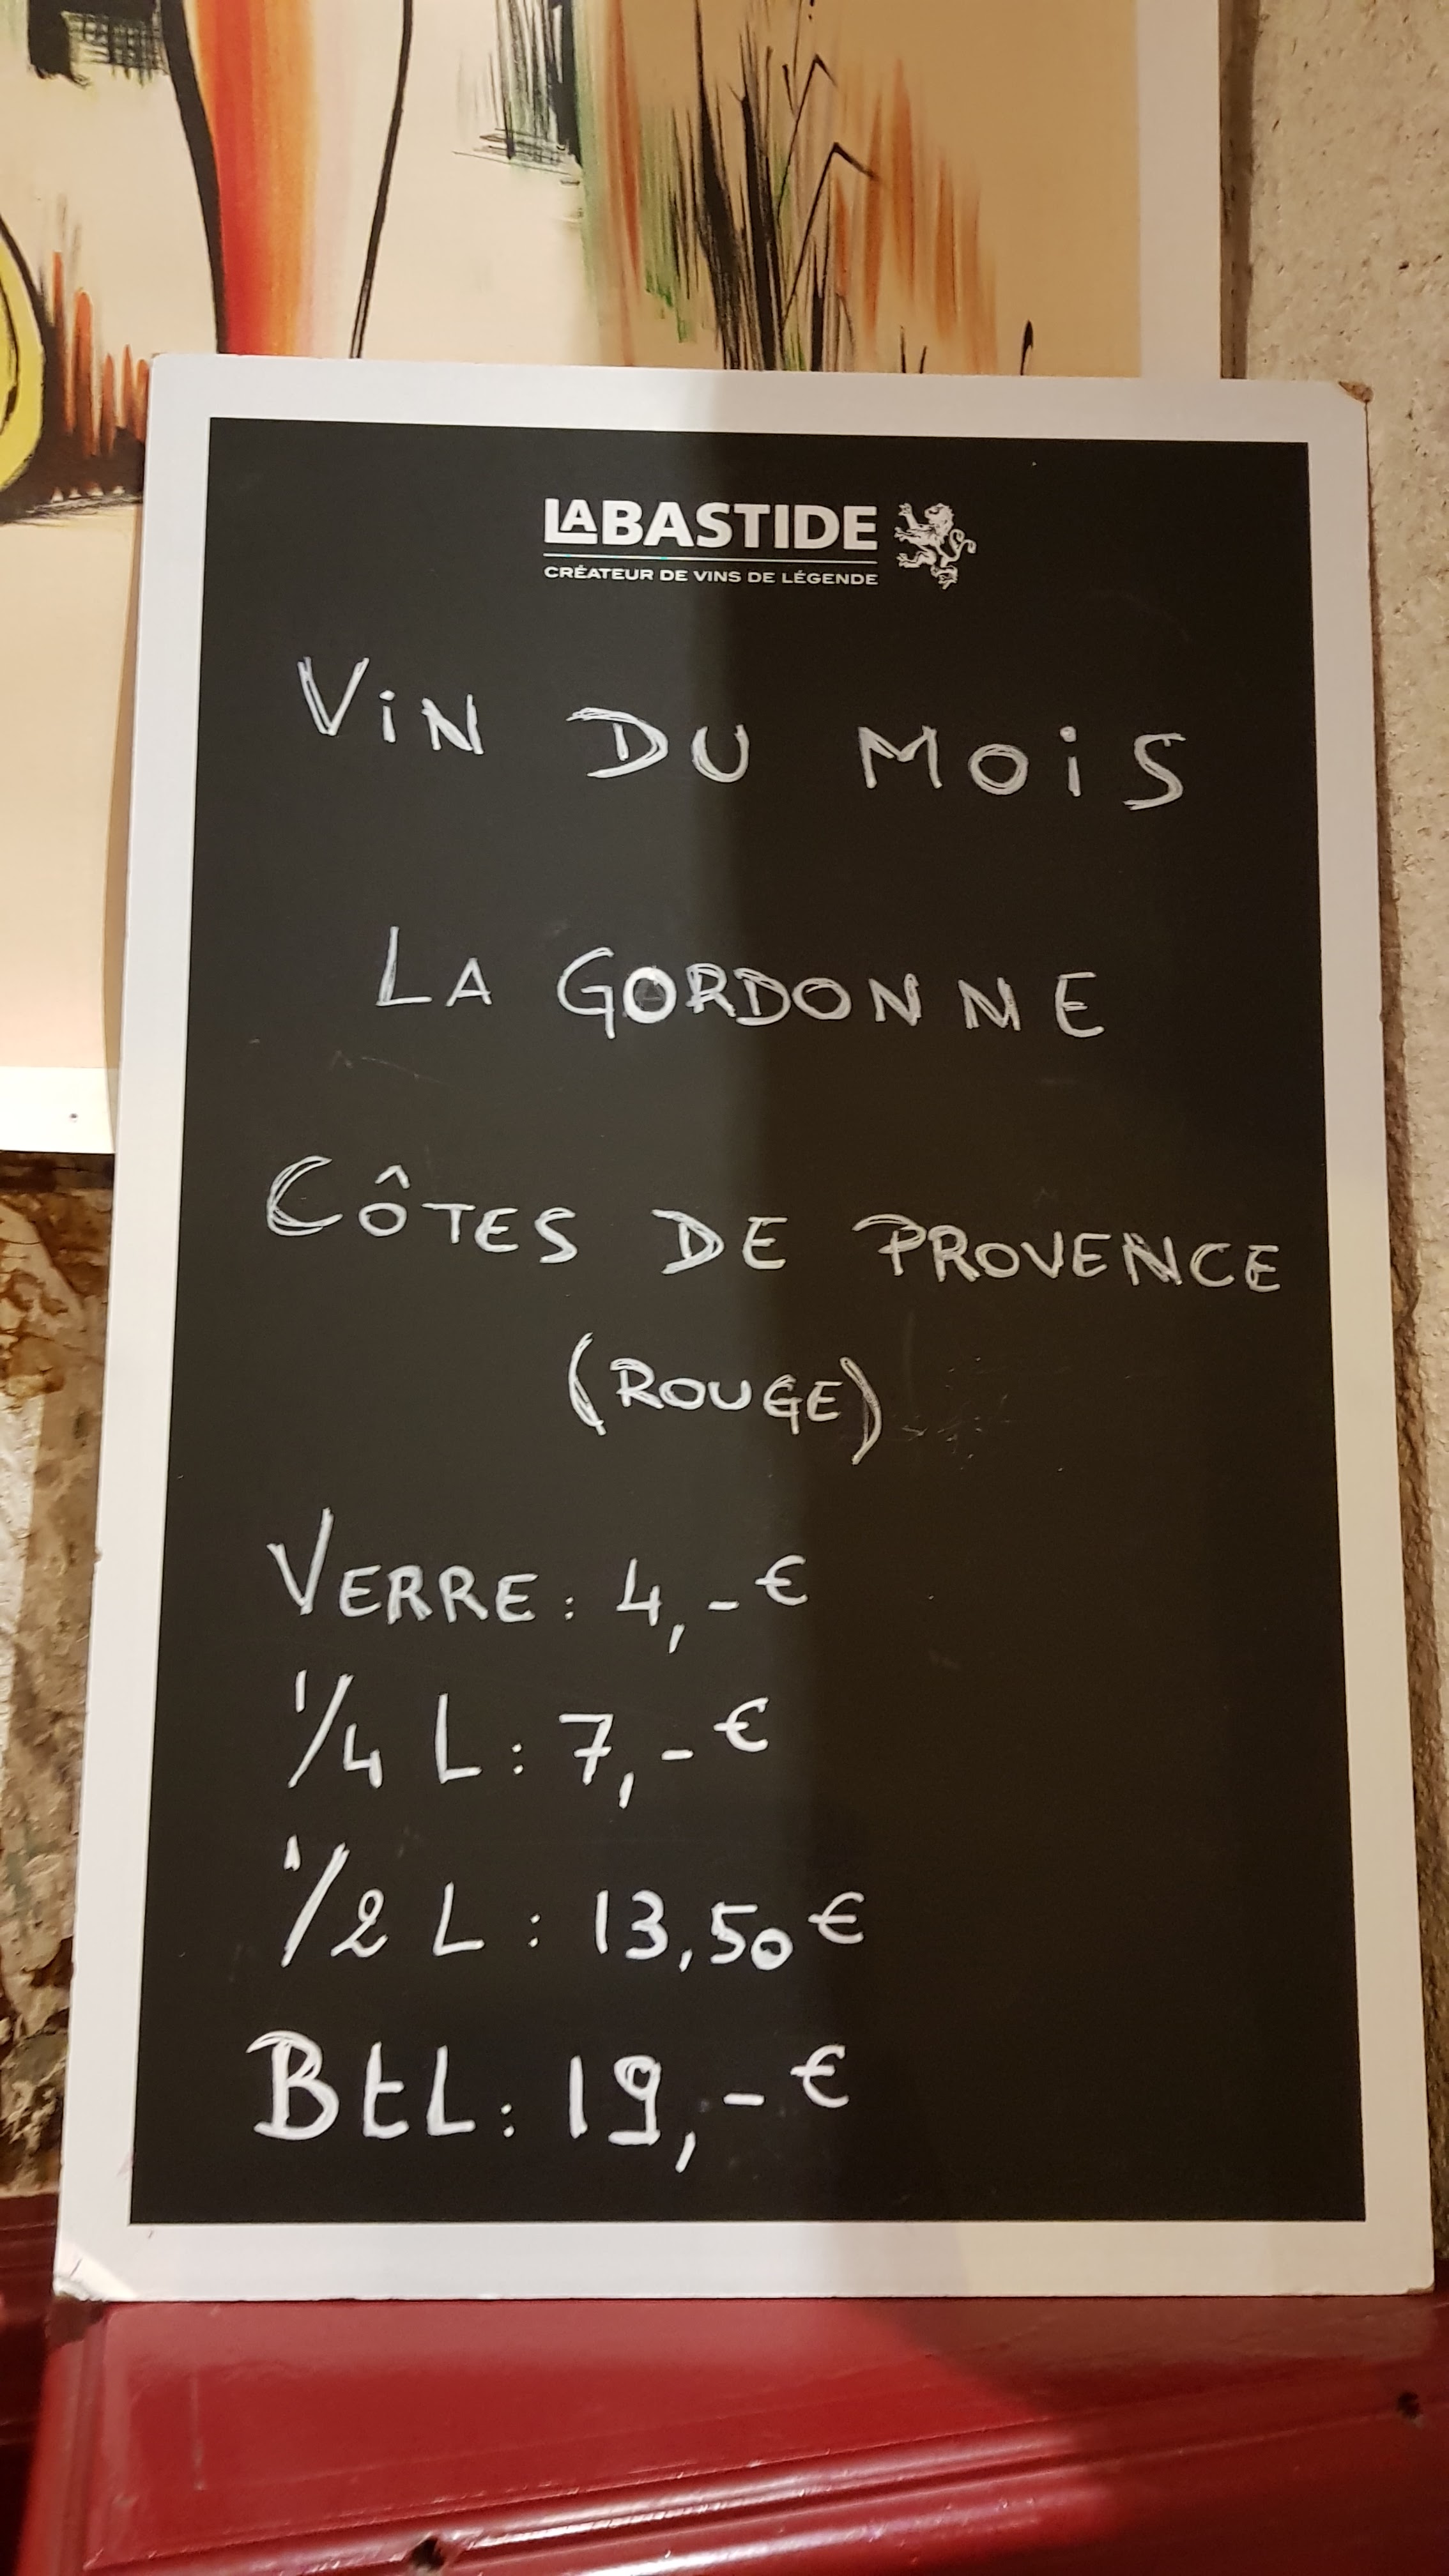 LABASTIDE
CRÉATEUR DE VINS DE LÉGENDE
ViN DU MOiS
LA GORDONNE
CÔTES DE PROVENCE
(ROUGE)
VERRE: 4,-€
1/4 L: 7,-€
1/2 L: 13,50€
BtL: 19,-€